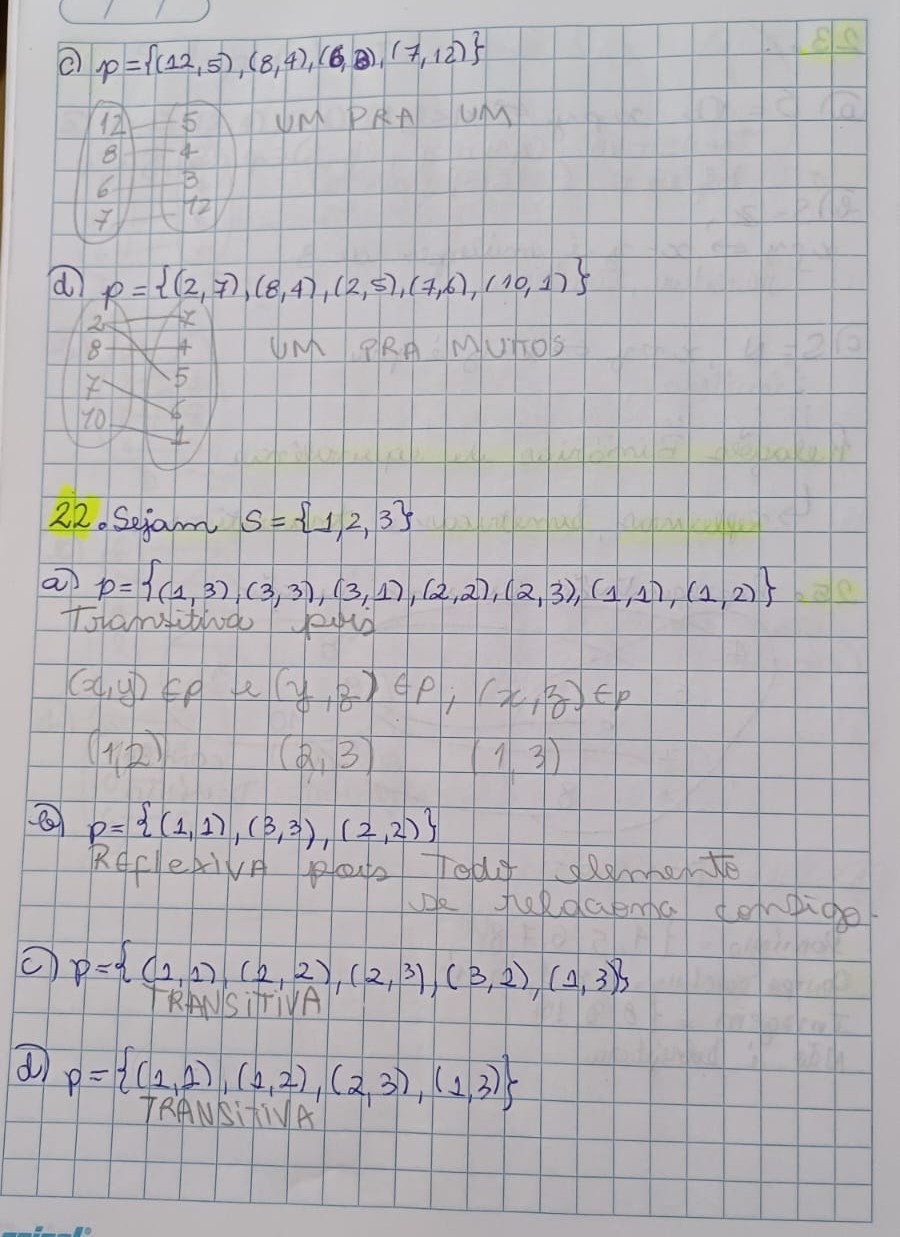 c) p={(12,5),(8,4),(6,3),(7,12)}
12 5 UM PRA UM
8 4
6 3
7 12
d) p={(2,7),(8,4),(2,5),(7,6),(10,1)}
2 7
8 4 UM PRA MUITOS
7 5
10 6
1
22. Sejam S={1,2,3}
a) p={(1,3),(3,3),(3,1),(2,2),(2,3),(1,1),(1,2)}
Transitiva pois
(x,y) ∈p e (y,z) ∈p; (x,z) ∈p
(1,2) (2,3) (1,3)
b) p={(1,1),(3,3),(2,2)}
REflExiVA pois Todo elemento
se relaciona consigo.
c) p={(1,1),(1,2),(2,3),(3,1),(1,3)}
TRANSiTiVA
d) p={(1,1),(1,2),(2,3),(1,3)}
TRANSiTiVA